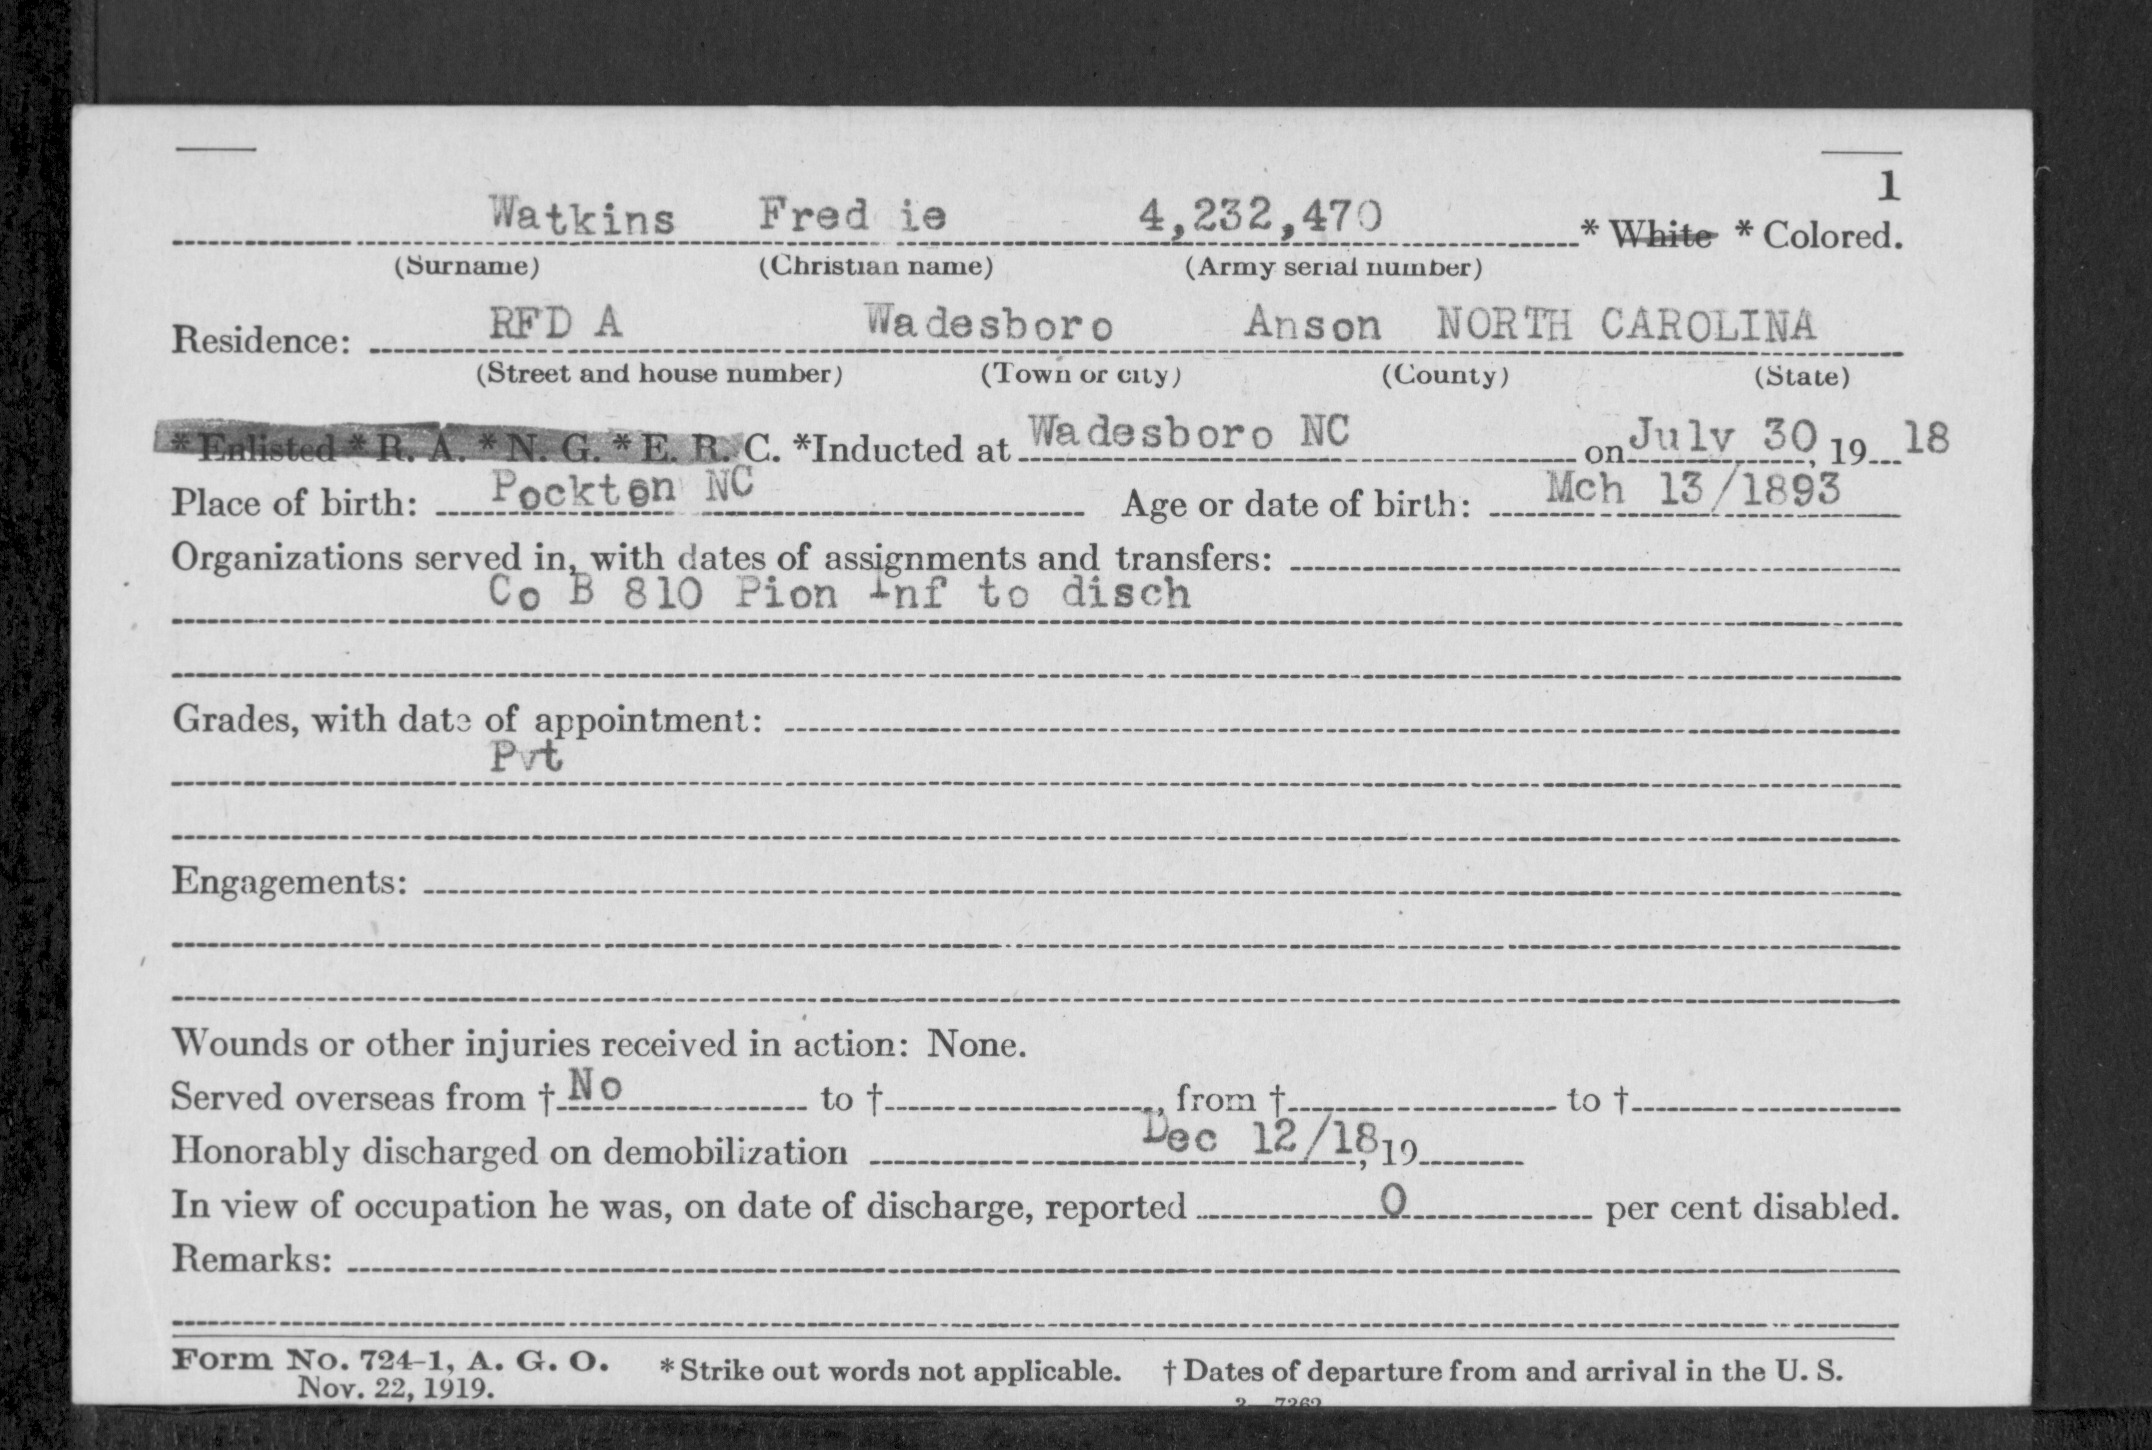 1
Watkins Fred ie 4,232,470 * White * Colored.
(Surname) (Christian name) (Army serial number)
Residence: RFD A Wadesboro Anson NORTH CAROLINA
(Street and house number) (Town or city) (County) (State)
* Enlisted * R. A. * N. G. * E. R. C. *Inducted at Wadesboro NC on July 30, 19 18
Place of birth: Pockton NC Age or date of birth: Mch 13/1893
Organizations served in, with dates of assignments and transfers:
Co B 810 Pion Inf to disch
Grades, with date of appointment:
Pvt
Engagements:
Wounds or other injuries received in action: None.
Served overseas from † No to †, from † to †
Honorably discharged on demobilization Dec 12/18, 19
In view of occupation he was, on date of discharge, reported 0 per cent disabled.
Remarks:
Form No. 724-1, A. G. O. * Strike out words not applicable. † Dates of departure from and arrival in the U. S.
Nov. 22, 1919.